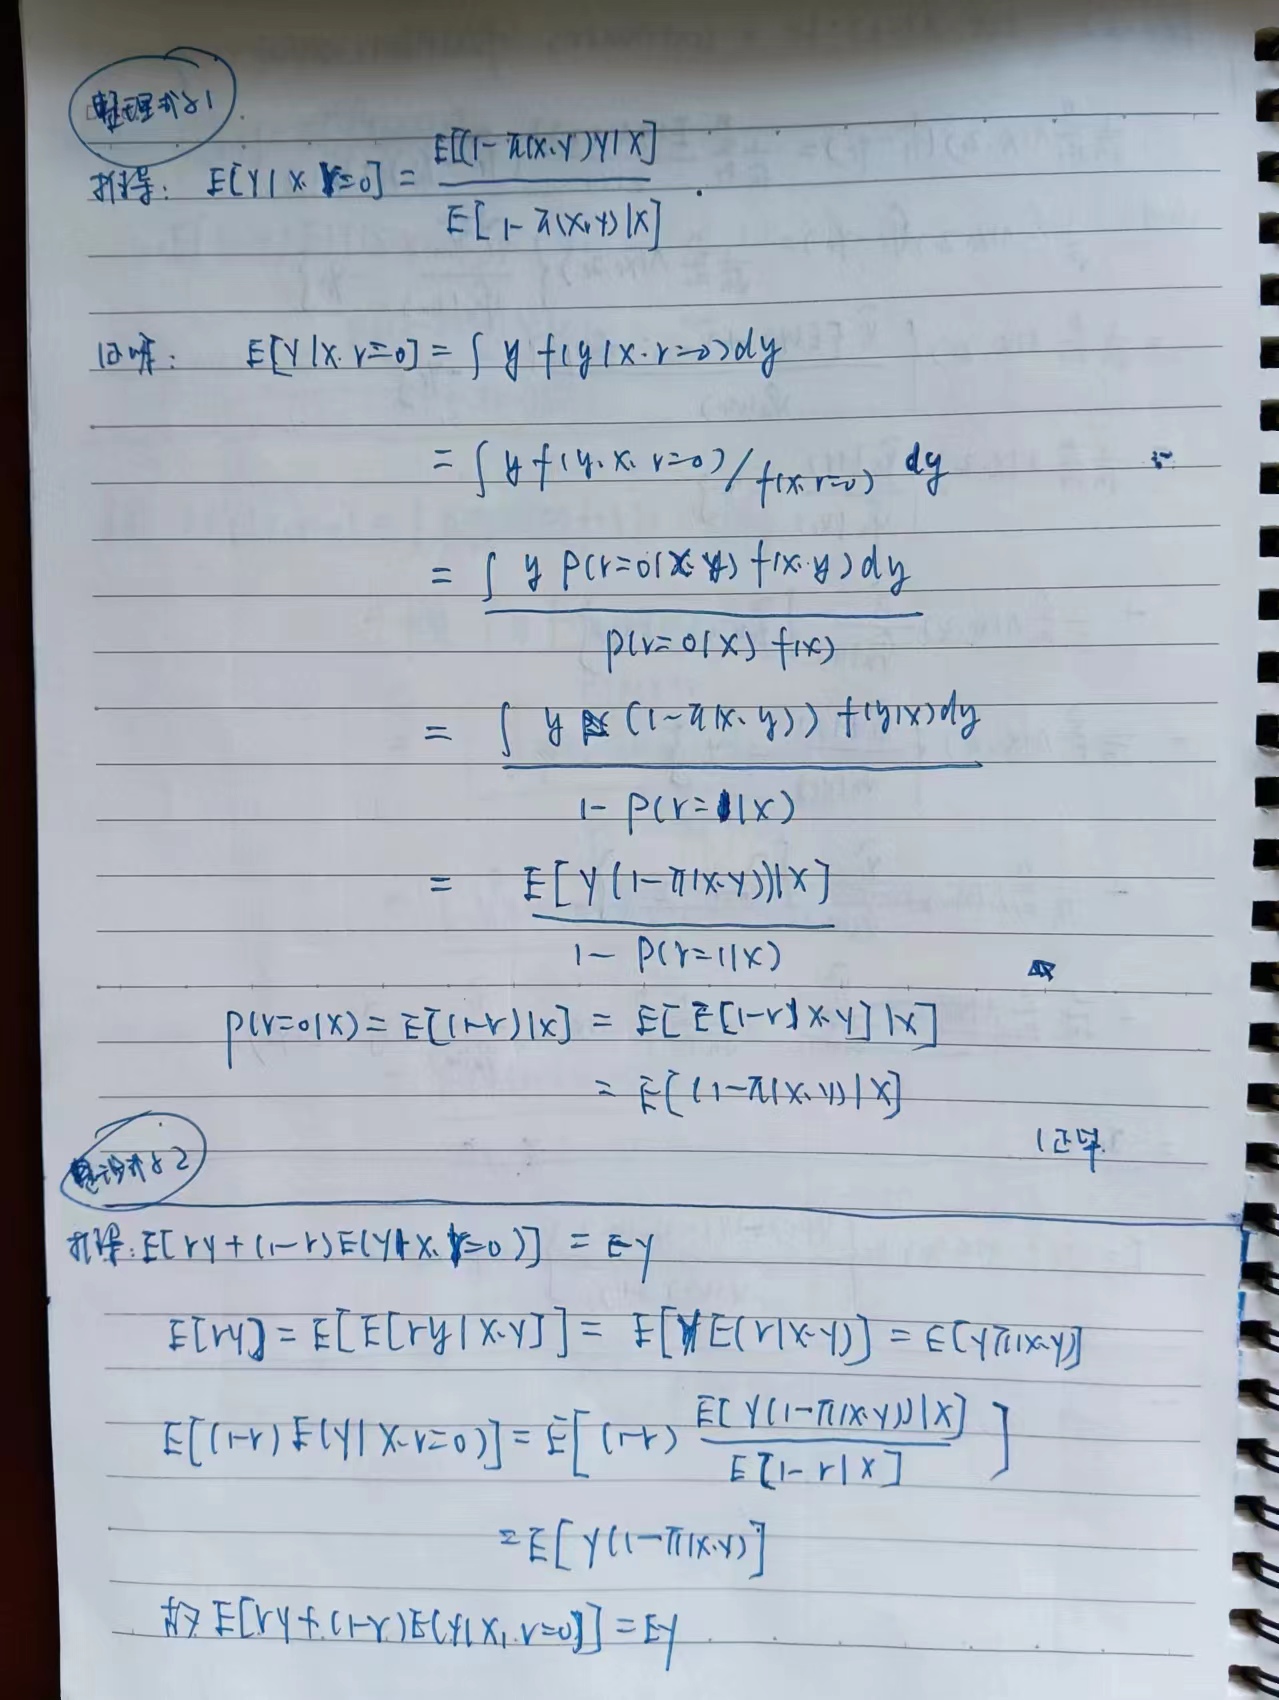 整理式子1
推导: E[Y|X. r=0] = E[(1-π(X.Y)Y|X] / E[1-π(X.Y)|X]
证明: E[Y|X. r=0] = ∫ y f(y|x. r=0)dy
= ∫ y f(y. x. r=0)/f(x. r=0) dy
= ∫ y P(r=0|x.y) f(x.y)dy / P(r=0|X) f(x)
= ∫ y (1-π(x.y)) f(y|x)dy / 1-P(r=1|X)
= E[Y(1-π(X.Y))|X] / 1-P(r=1|X)
P(r=0|X) = E[(1-r)|X] = E[E[1-r|X.Y]|X]
= E[(1-π(X.Y))|X]
证毕
式子2
推导: E[rY+(1-r)E(Y|X. r=0)] = EY
E[ry] = E[E[ry|X.Y]] = E[YE(r|X.Y)] = E[Yπ(X.Y)]
E[(1-r)E(Y|X.r=0)] = E[(1-r) E[Y(1-π(X.Y))|X] / E[1-r|X]]
= E[Y(1-π(X.Y)]
故 E[ry+(1-r)E(Y|X, r=0)] = EY